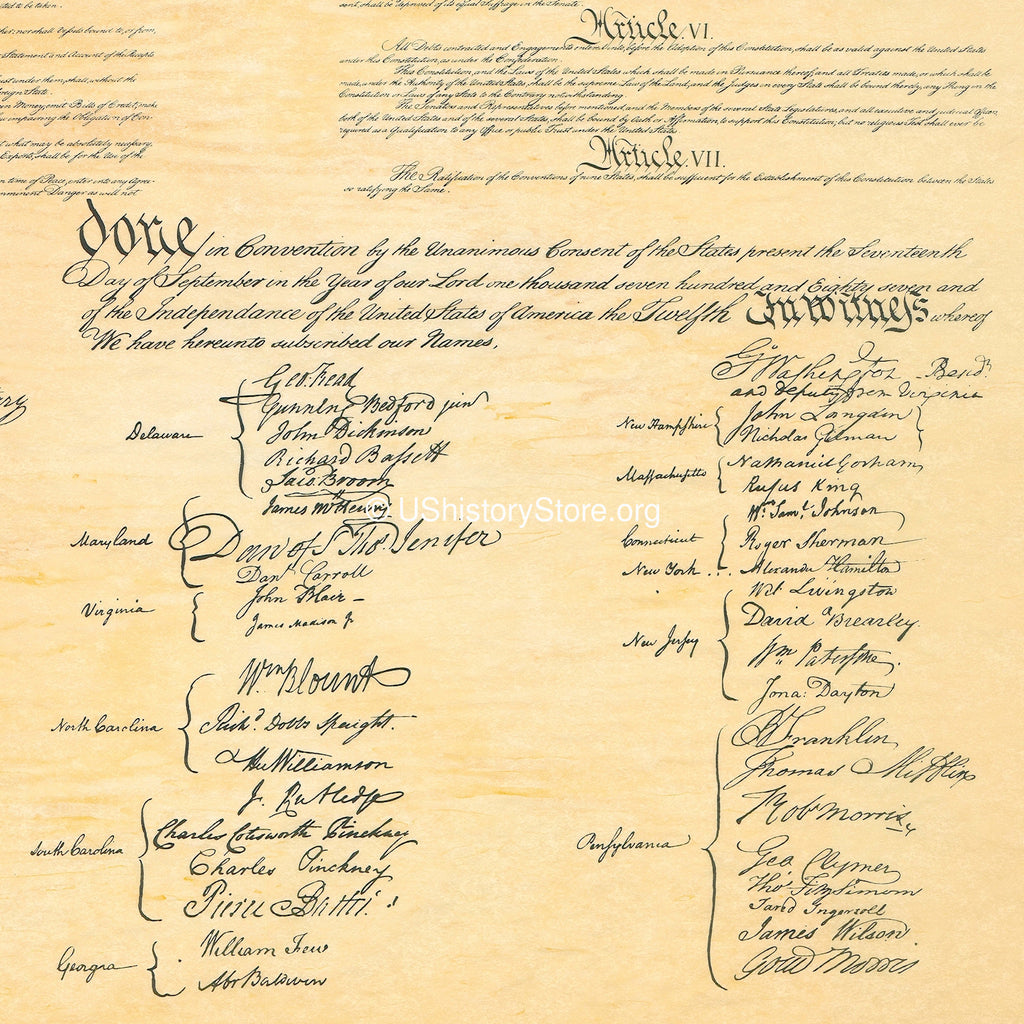 ded to be taken.
her; nor shall Vessels bound to, or from,
Statement and Account of the Receipts
ust under them, shall, without the
Foreign State.
in Money; emit Bills of Credit; make
w impairing the Obligation of Con-
t what may be absolutely necessary
Exports, shall be for the Use of the
n time of Peace, enter into any Agree-
mminent Danger as will not
sent, shall be deprived of its equal Suffrage in the Senate.
Article. VI.
All Debts contracted and Engagements entered into, before the Adoption of this Constitution, shall be as valid against the United States
under this Constitution, as under the Confederation.
This Constitution, and the Laws of the United States which shall be made in Pursuance thereof; and all Treaties made, or which shall be
made, under the Authority of the United States, shall be the supreme Law of the Land; and the Judges in every State shall be bound thereby, any Thing in the
Constitution or Laws of any State to the Contrary notwithstanding.
The Senators and Representatives before mentioned, and the Members of the several State Legislatures, and all executive and judicial Officers,
both of the United States and of the several States, shall be bound by Oath or Affirmation, to support this Constitution; but no religious Test shall ever be
required as a Qualification to any Office or public Trust under the United States.
Article. VII.
The Ratification of the Conventions of nine States, shall be sufficient for the Establishment of this Constitution between the States
so ratifying the Same.
done in Convention by the Unanimous Consent of the States present the Seventeenth
Day of September in the Year of our Lord one thousand seven hundred and Eighty seven and
of the Independance of the United States of America the Twelfth In Witness whereof
We have hereunto subscribed our Names,
Delaware
Geo: Read
Gunning Bedford jun
John Dickinson
Richard Bassett
Jaco: Broom
Maryland
James McHenry
Dan of St Thos. Jenifer
Danl Carroll
Virginia
John Blair -
James Madison Jr
North Carolina
Wm Blount
Richd. Dobbs Spaight.
Hu Williamson
South Carolina
J. Rutledge
Charles Cotesworth Pinckney
Charles Pinckney
Pierce Butler.
Georgia
William Few
Abr Baldwin
Go Washington - Presidt
and deputy from Virginia
New Hampshire
John Langdon
Nicholas Gilman
Massachusetts
Nathaniel Gorham
Rufus King
Connecticut
Wm. Saml. Johnson
Roger Sherman
New York . . . Alexander Hamilton
New Jersey
Wil: Livingston
David Brearley.
Wm Paterson.
Jona: Dayton
Pensylvania
B Franklin
Thomas Mifflin
Robt Morris
Geo. Clymer
Thos. FitzSimons
Jared Ingersoll
James Wilson.
Gouv Morris
© UShistoryStore.org